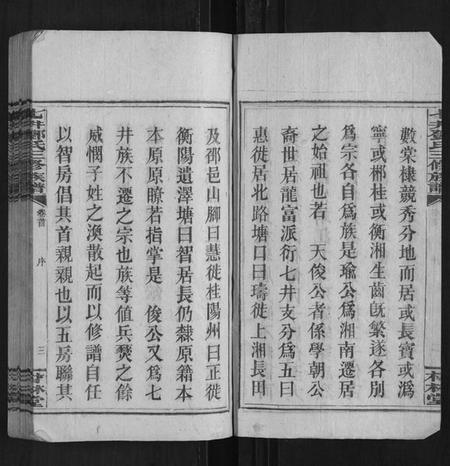 數棠棣競秀分地而居或長寶或溈
寧或郴桂或衡湘生齒旣繁遂各別
爲宗各自爲族是瑜公爲湘南遷居
之始祖也若　天俊公者係學朝公
奇世居龍富派衍七井支分爲五曰
惠徙居北路塘口曰璹徙上湘長田
及邵邑山腳曰慧徙桂陽州曰正徙
衡陽遺澤塘曰智居長仍隸原籍本
本原原瞭若指掌是　俊公又爲七
井族不遷之宗也族等值兵燹之餘
咸憫子姓之渙散起而以修譜自任
以智房倡其首親親也以五房聯其
七井鄧氏三修族譜
卷首
序
三